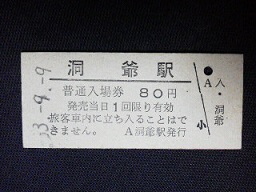 53.-9.-9
洞爺駅
普通入場券 80円
発売当日1回限り有効
旅客車内に立ち入ることはで
きません。 A洞爺駅発行
A
人・洞爺
小